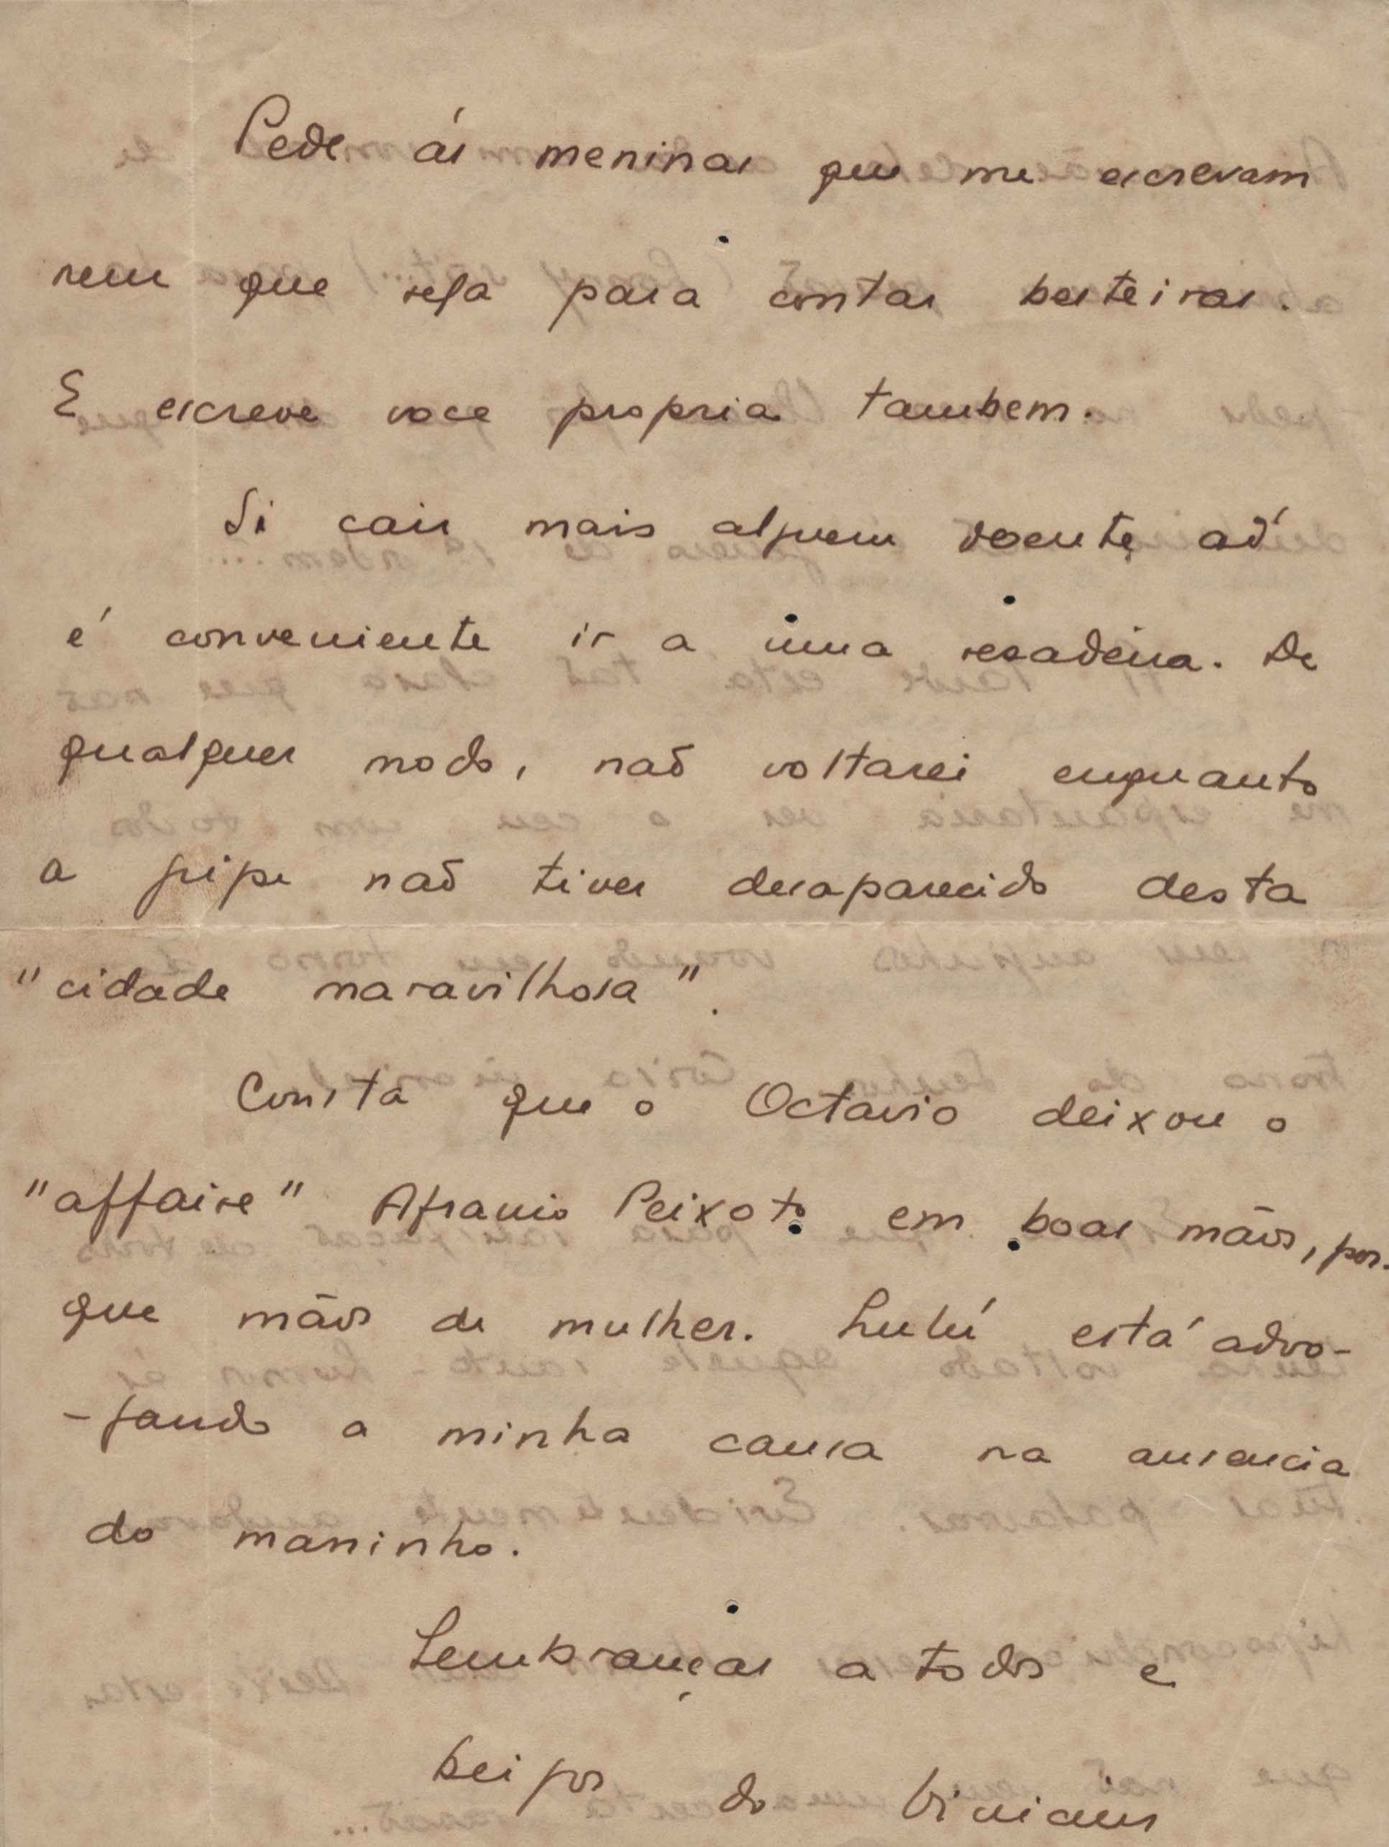 Pede ás meninas que me escrevam
nem que seja para contar besteiras.
E escreve voce propria tambem.
Si cair mais alguem doente ad
é conveniente ir a uma resadeira. De
qualquer modo, naõ voltarei enquanto
a gripe naõ tiver desaparecido desta
"cidade maravilhosa".
Consta que o Octavio deixou o
"affaire" Afranio Peixoto em boas mãos, por-
que mãos de mulher. Lulú está advo-
-gando a minha causa na ausencia
do maninho.
Lembranças a todos e
beijos do Vinicius